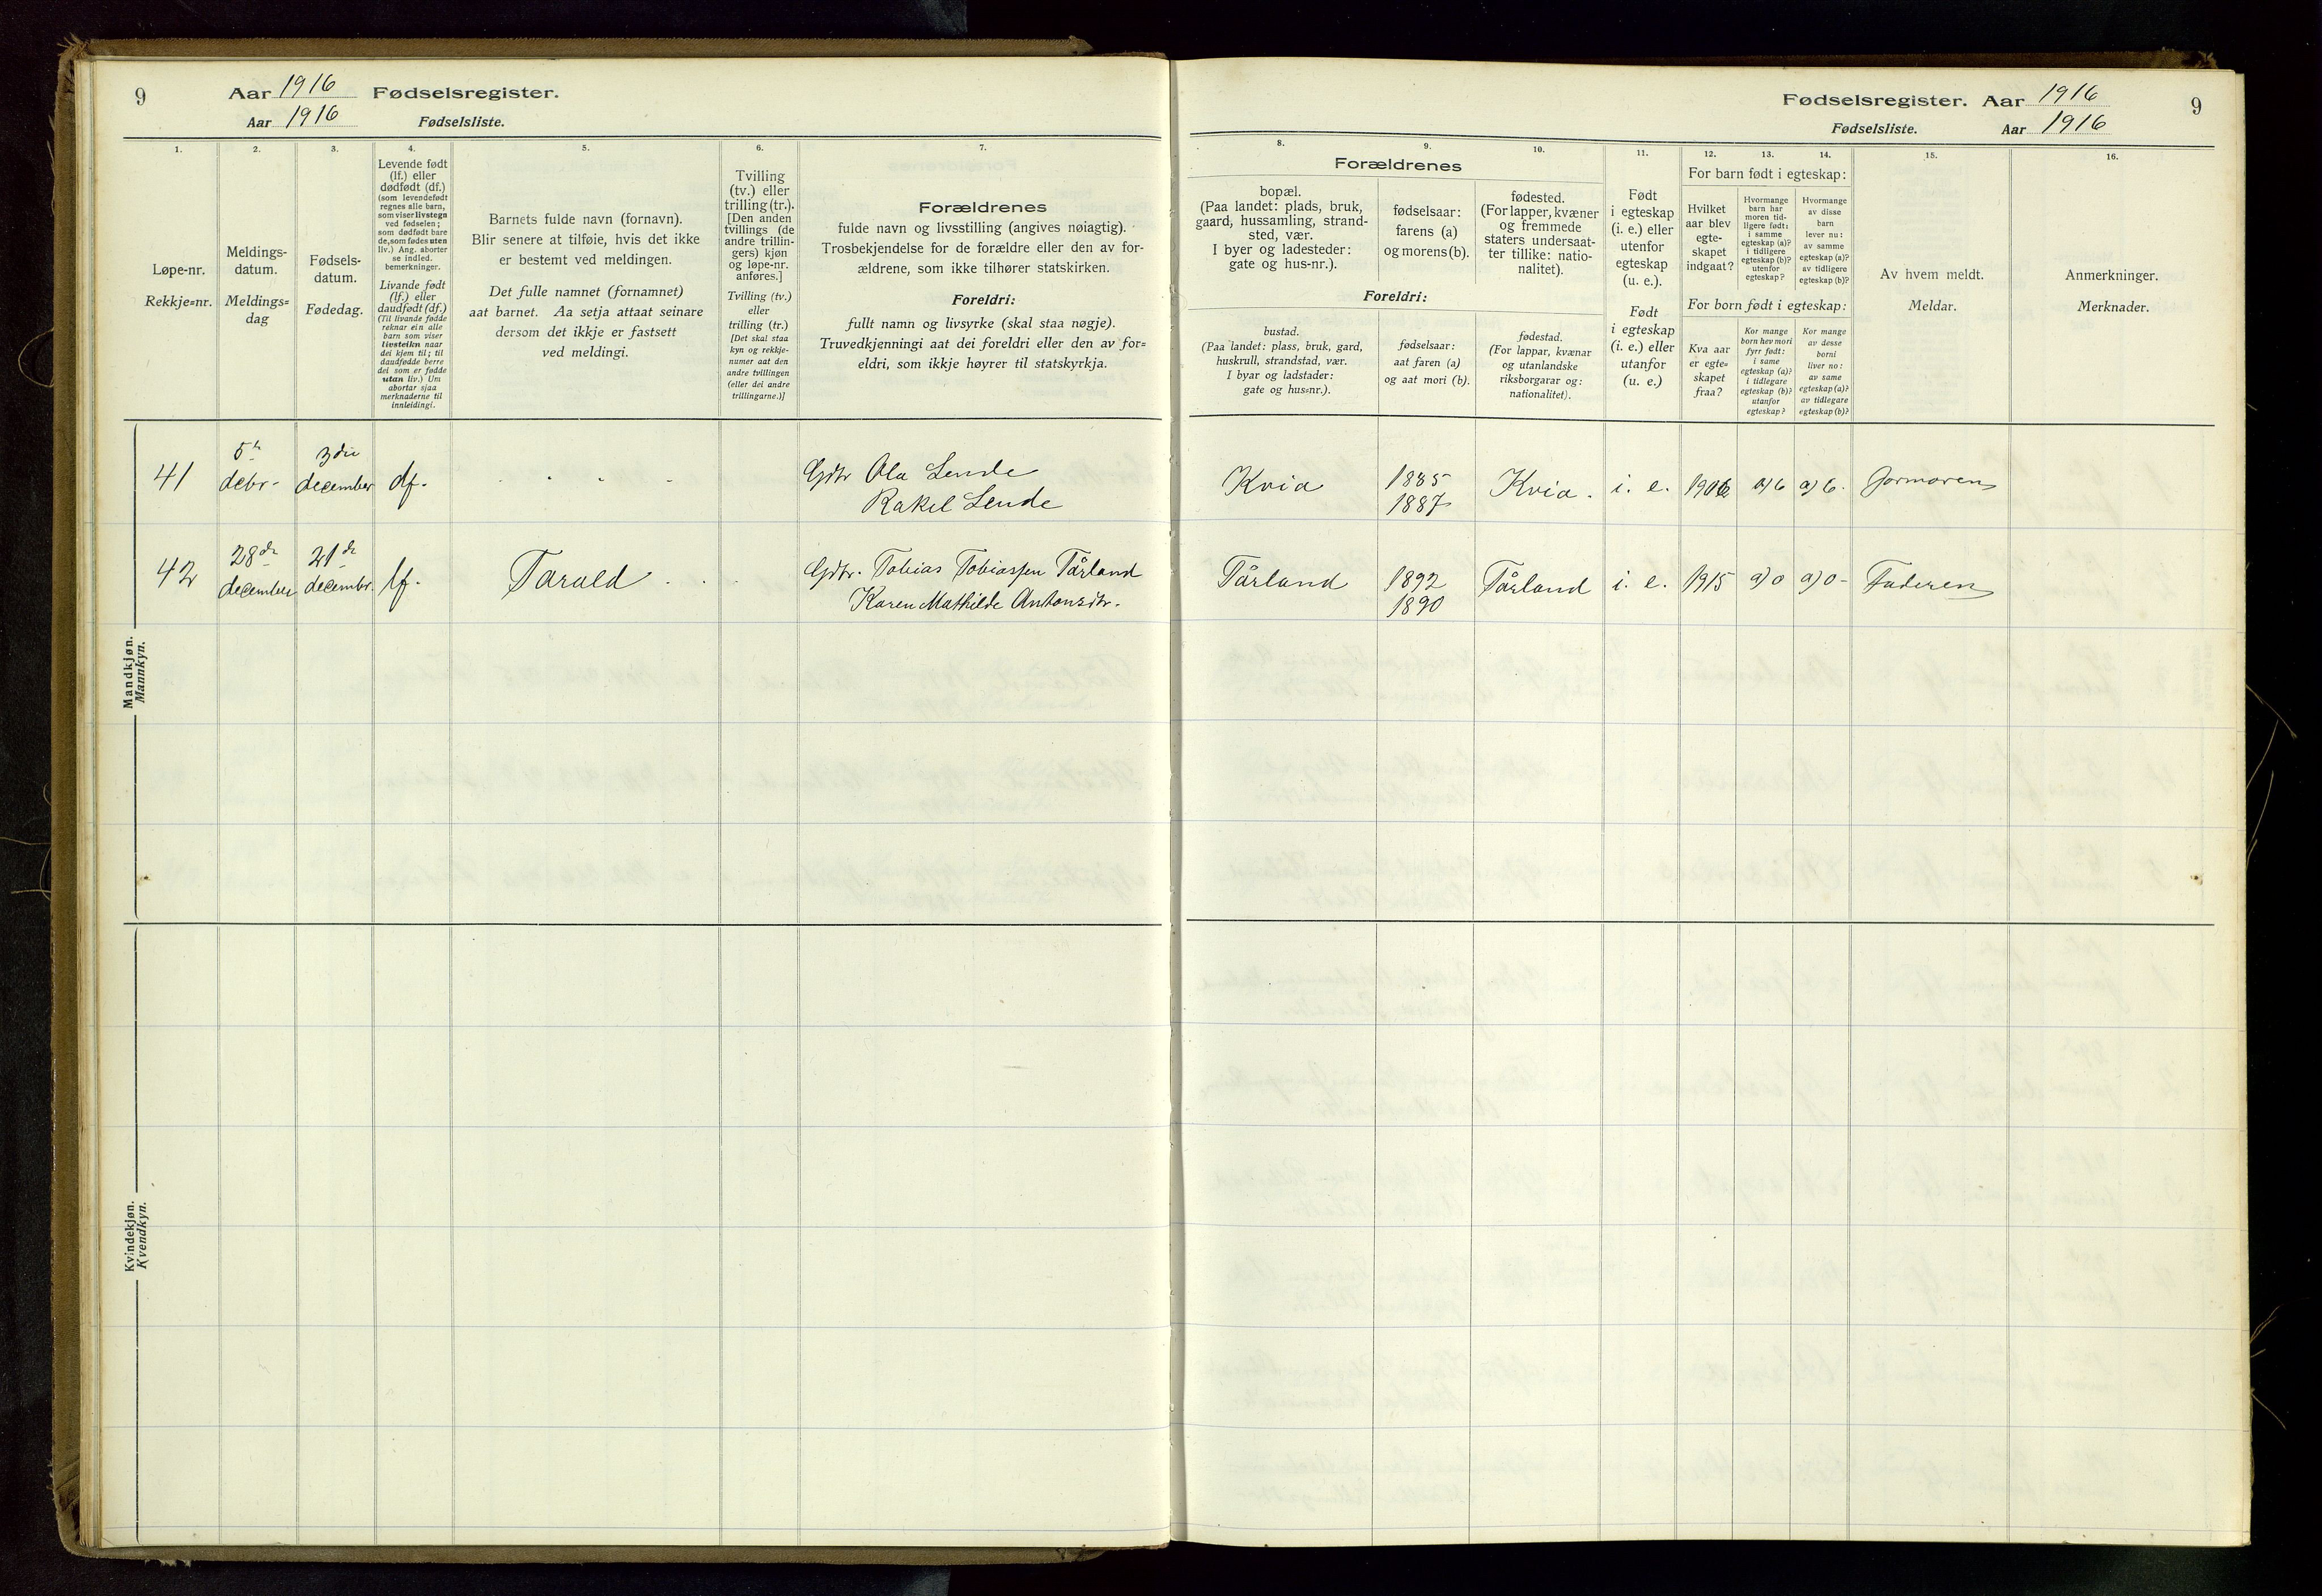 9
Aar 1916 Fødselsregister.
Aar 1916 Fødselsliste.
1.
Løpe-nr.
Rekkje=nr.
2.
Meldings-
datum.
Meldings=
dag
3.
Fødsels-
datum.
Fødedag.
4.
Levende født
(lf.) eller
dødfødt (df.)
(som levendefødt
regnes alle barn,
som viser livstegn
ved fødselen;
som dødfødt bare
de, som fødes uten
liv.) Ang. aborter
se indled.
bemerkninger.
Livande født
(lf.) eller
daudfødt (df.)
(Til livande fødde
reknar ein alle
barn som viser
livsteikn naar
dei kjem til; til
daudfødde berre
dei som er fødde
utan liv.) Um
abortar sjaa
merknaderne til
innleidingi.
5.
Barnets fulde navn (fornavn).
Blir senere at tilføie, hvis det ikke
er bestemt ved meldingen.
Det fulle namnet (fornamnet)
aat barnet. Aa setja attaat seinare
dersom det ikkje er fastsett
ved meldingi.
6.
Tvilling
(tv.) eller
trilling (tr.).
[Den anden
tvillings (de
andre trillin-
gers) kjøn
og løpe-nr.
anføres.]
Tvilling (tv.)
eller
trilling (tr.)
[Det skal staa
kyn og rekkje-
numer aat den
andre tvillingen
(eller dei andre
trillingarne.)]
7.
Forældrenes
fulde navn og livsstilling (angives nøiagtig).
Trosbekjendelse for de forældre eller den av for-
ældrene, som ikke tilhører statskirken.
Foreldri:
fullt namn og livsyrke (skal staa nøgje).
Truvedkjenningi aat dei foreldri eller den av for=
eldri, som ikkje høyrer til statskyrkja.
Mandkjøn.
Mannkyn.
41 5te debr. 3die december df.
Gdbr Ola Lende
Rakel Lende
42 28de december 21de decembr. lf. Tarald
Gdbr. Tobias Tobiassen Tårland
Karen Mathilde Antonsdtr.
Kvindekjøn.
Kvendkyn.
Fødselsregister. Aar 1916
9
Fødselsliste. Aar 1916
8. 9. 10.
Forældrenes
bopæl.
(Paa landet: plads, bruk,
gaard, hussamling, strand-
sted, vær.
I byer og ladesteder:
gate og hus-nr.).
fødselsaar:
farens (a)
og morens (b).
fødested.
(For lapper, kvæner
og fremmede
staters undersaat-
ter tillike: natio-
nalitet).
Foreldri:
bustad.
(Paa landet: plass, bruk, gard,
huskrull, strandstad, vær.
I byar og ladstader:
gate og hus=nr.).
fødselsaar:
aat faren (a)
og aat mori (b).
fødestad.
(For lappar, kvænar
og utanlandske
riksborgarar og:
nationalitet).
11.
Født
i egteskap
(i. e.) eller
utenfor
egteskap
(u. e.).
Født
i egteskap
(i. e.) eller
utanfor
(u. e.)
12. 13. 14.
For barn født i egteskap:
Hvilket
aar blev
egte-
skapet
indgaat?
Hvormange
barn har
moren tid-
ligere født:
i samme
egteskap (a)?
i tidligere
egteskap (b)?
utenfor
egteskap?
Hvormange
av disse
barn
lever nu:
av samme
egteskap (a)?
av tidligere
egteskap (b)?
For born født i egteskap:
Kva aar
er egte-
skapet
fraa?
Kor mange
born hev mori
fyrr født:
i same
egteskap (a)?
i tidlegare
egteskap (b)?
utanfor
egteskap?
Kor mange
av desse
borni
liver no:
av same
egteskap (a)?
av tidlegare
egteskap (b)?
15.
Av hvem meldt.
Meldar.
16.
Anmerkninger.
Merknader.
Kvia 1885 1887 Kvia. i. e. 1906 a) 6 a) 6. Jormoren
Tårland 1892 1890 Tårland i. e. 1915 a) 0 a) 0 - Faderen